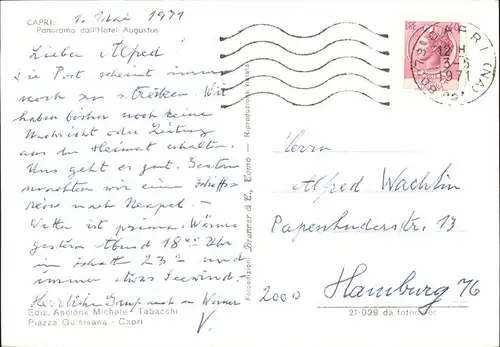 CAPRI:
1. Mai 1971
Panorama dall'Hotel Augustus
Lieber Alfred!
Die Post scheint immer
noch zu streiken. Wir
haben bisher noch keine
Nachricht oder Zeitung
aus der Heimat erhalten.
Uns geht es gut. Gestern
machten wir eine Schiffs-
reise nach Neapel.
Wetter ist prima. Wärme
gestern Abend 18 00 Uhr
im Schatten 23 und
immer etwas Seewind.
Herzliche Grüße auch an Werner
V.
Ediz. Ascione Michele - Tabacchi
Piazza Quisisana - Capri
Fotocelere Brunner & C., Como — Riproduzione vietata
CAPRI (NA)
12 H
3-5
1971
Herrn
Alfred Wachtin
Papenhuderstr. 13
2000 Hamburg 76
21-029 da fotocolor